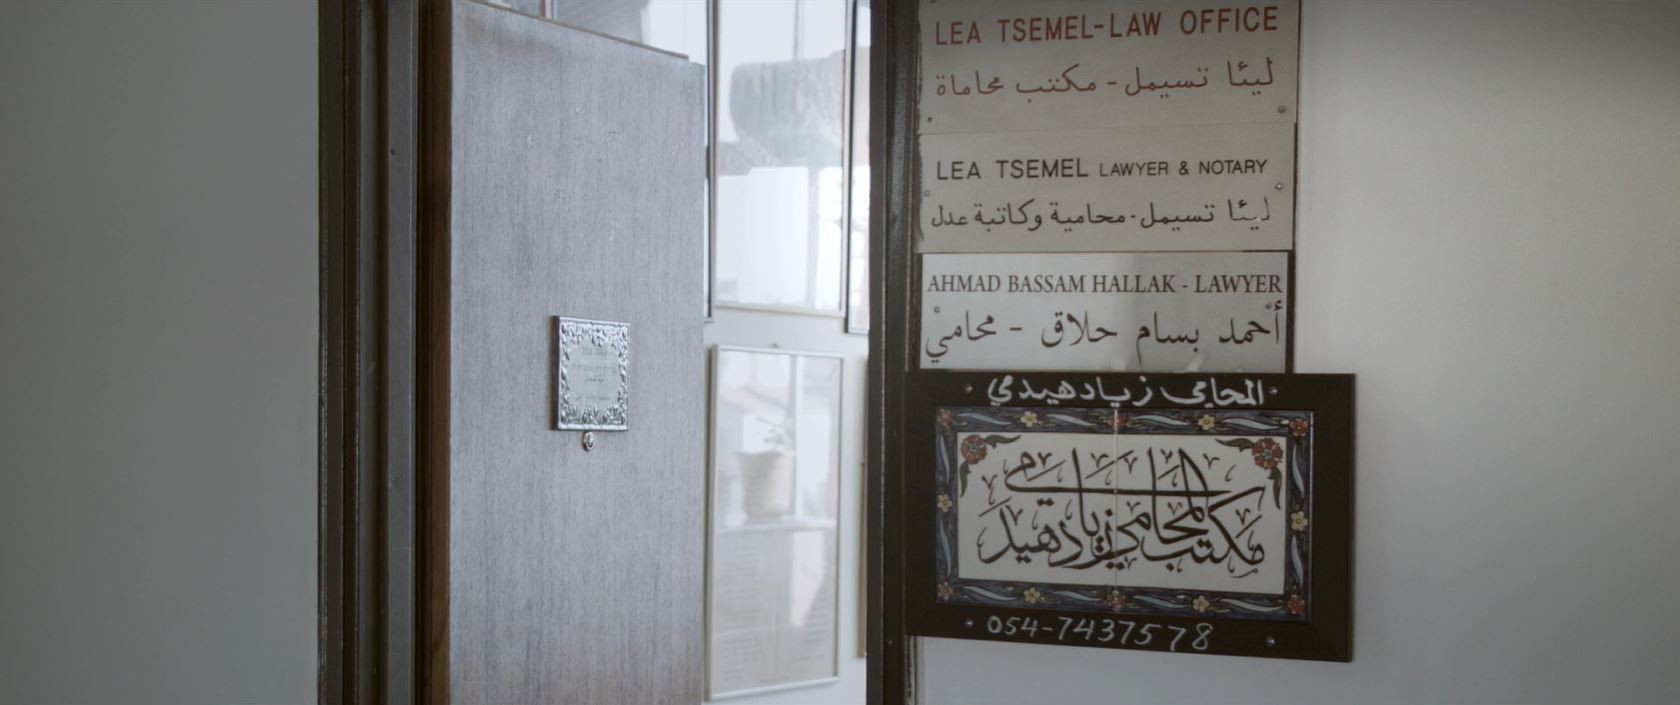 LEA TSEMEL-LAW OFFICE
ليئا تسيمل - مكتب محاماة
LEA TSEMEL LAWYER & NOTARY
ليئا تسيمل - محامية وكاتبة عدل
AHMAD BASSAM HALLAK - LAWYER
أحمد بسام حلاق - محامي
المحامي زياد هيدمي
مكتب المحامي زياد هيدمي
054-7437578